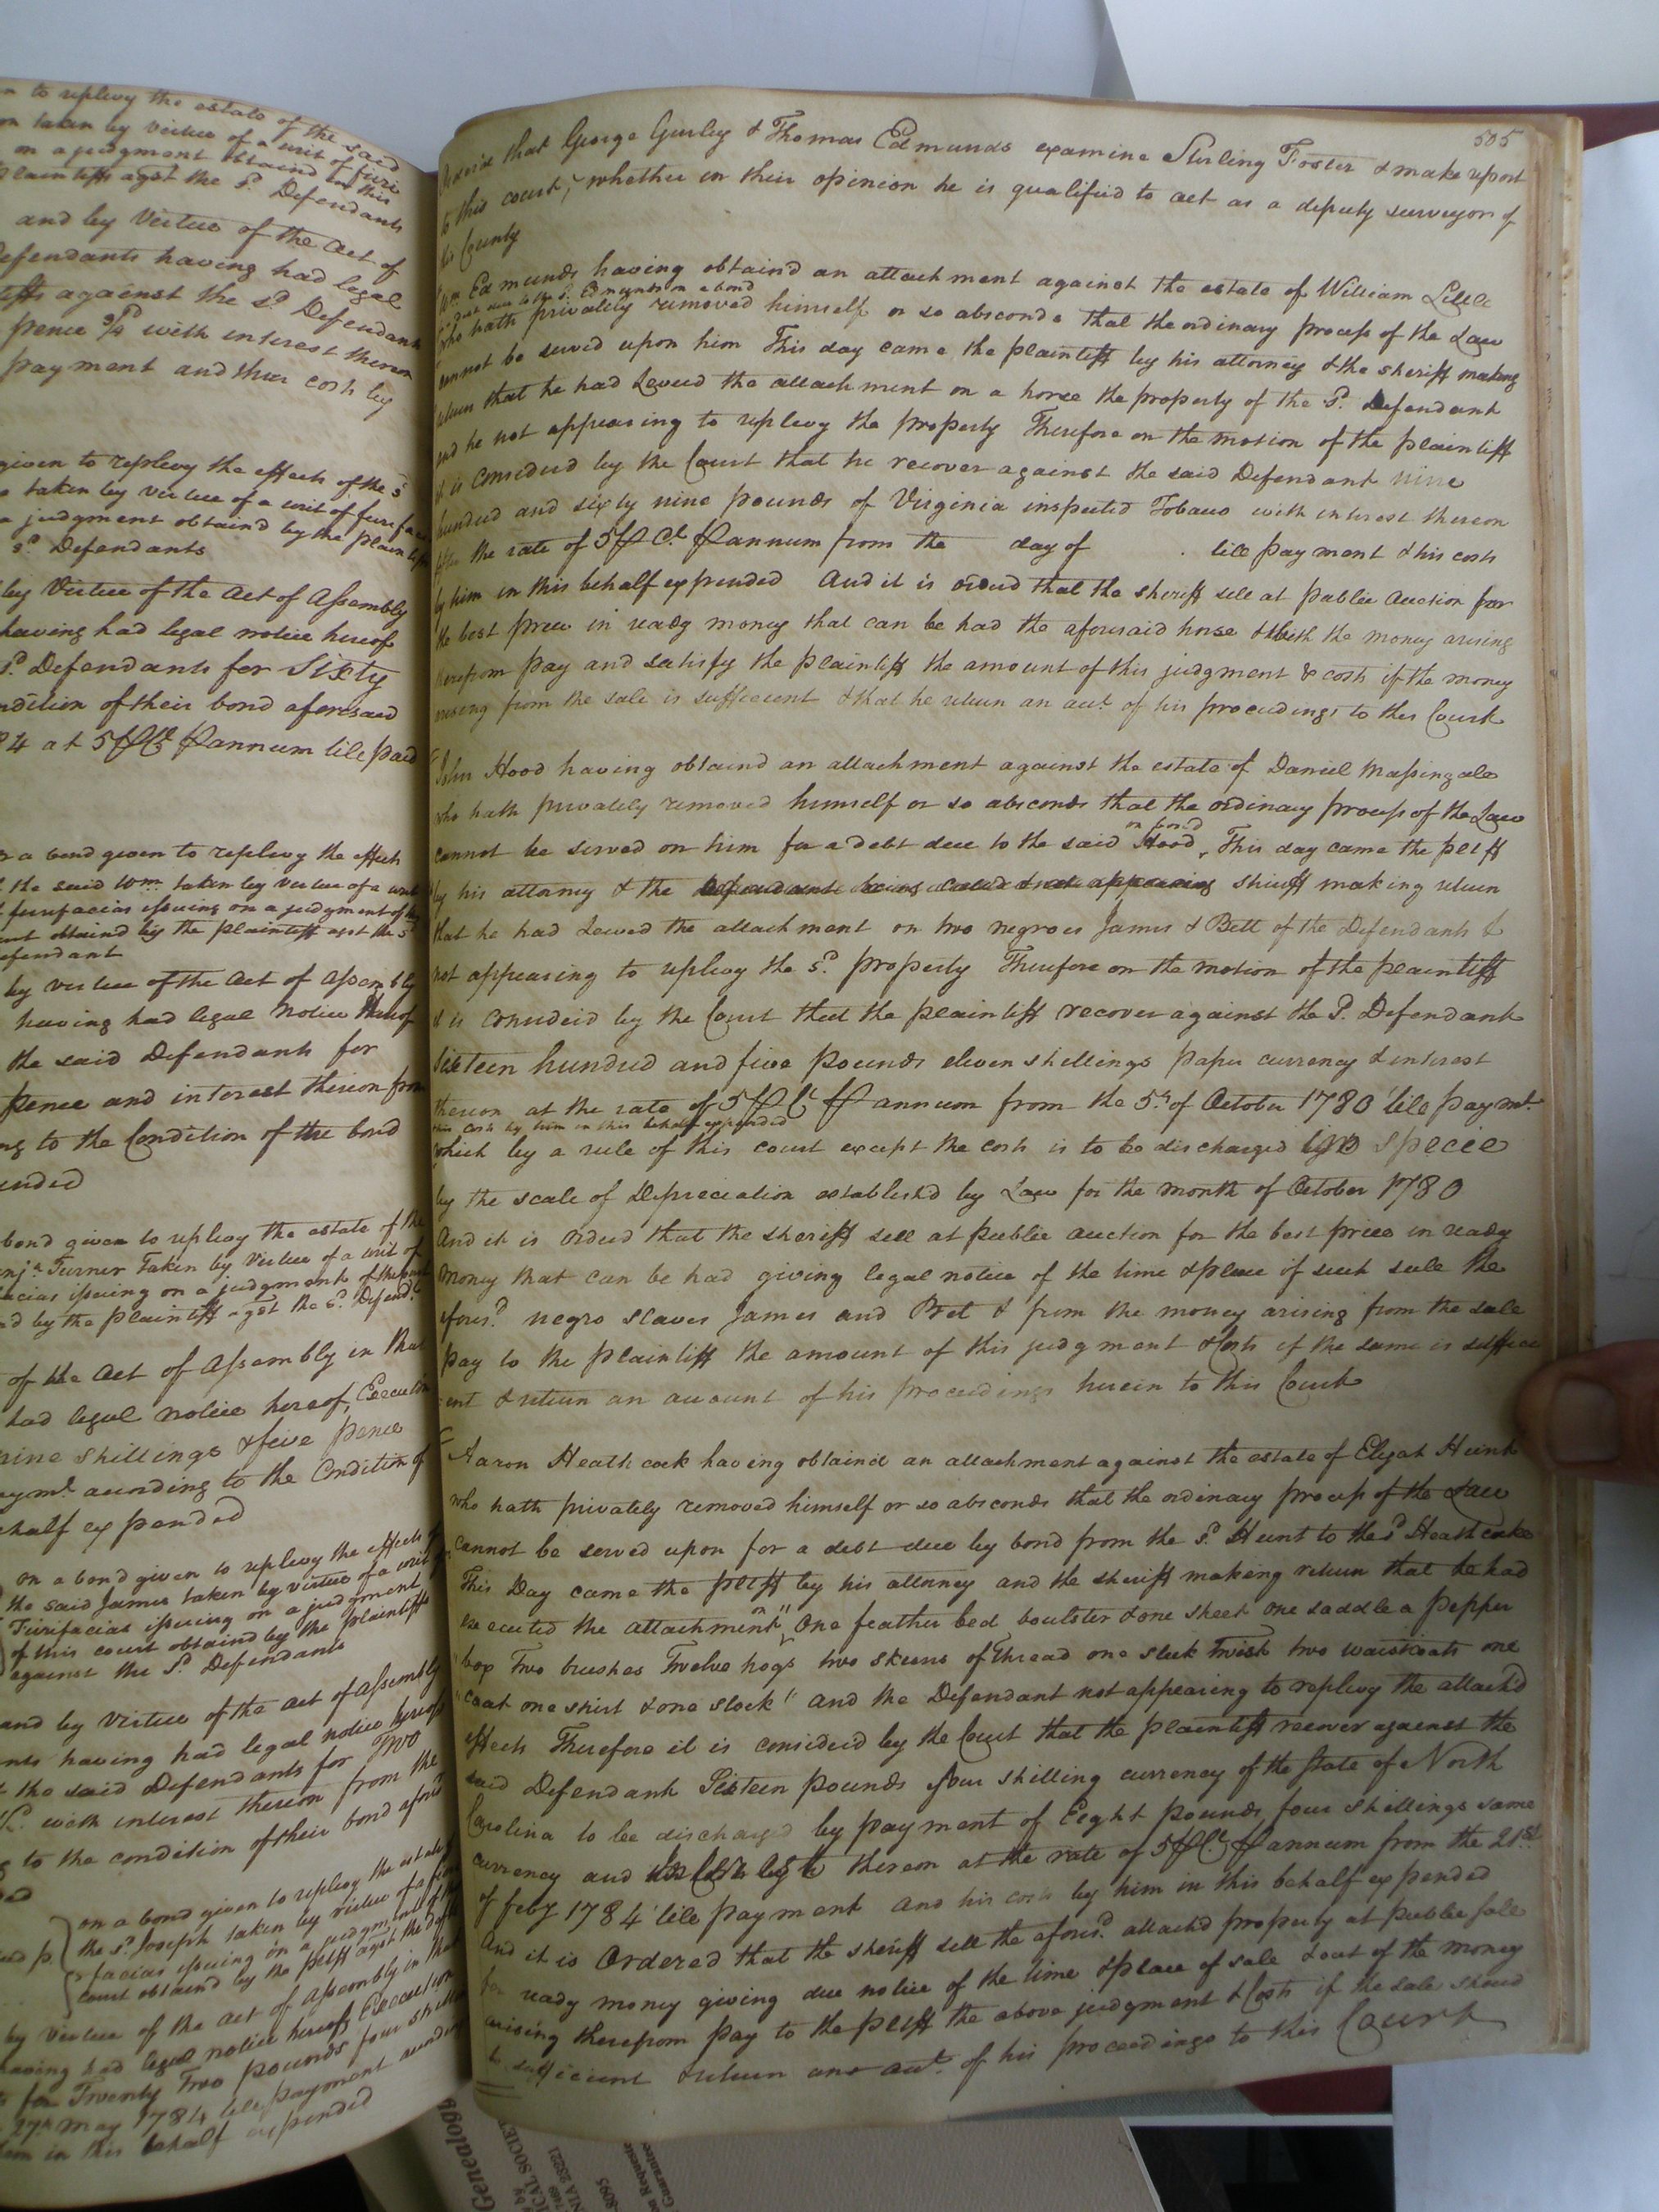 n to replevy the estate of the said
on taken by virtue of a writ of fieri
on a judgment obtaind in this
Plaintiffs agst the sd. Defendants
and by Virtue of the Act of
Defendants having had legal
tiffs against the sd. Defendants
pence 3/4 with interest thereon
payment and their costs by
given to replevy the effects of the sd
taken by virtue of a writ of fieri fa
a judgment obtaind by the plaintiffs
sd Defendants
by Virtue of the Act of Assembly
having had legal notice hereof
sd. Defendants for Sixty
ndition of their bond aforesaid
84 at 5 ℔ Ct ℔ annum till paid
a bond given to replevy the effects
the said Wm. taken by virtue of a writ
fierifacias issuing on a judgment of
obtaind by the plaintiff agst the sd
efendant
by virtue of the Act of Assembly
having had legal notice thereof
the said Defendants for
pence and interest thereon from
ng to the Condition of the bond
ended
bond given to replevy the estate of the
nja. Turner Taken by Virtue of a writ of
facias issuing on a judgment of the
d by the plaintiff agst the sd. Defendt.
of the Act of Assembly in that
had legal notice hereof, Execution
nine shillings & five pence
aymt. according to the Condition of
ehalf expended
on a bond given to replevy the effects
the said James taken by virtue of a writ
Fierifacias issuing on a judgment
of this court obtaind by the plaintiffs
against the sd. Defendants
and by Virtue of the act of assembly
nts having had legal notice hereof
the said Defendants for Two
with interest thereon from the
to the condition of their bond aforesd
on a bond given to replevy the estate
the sd. Joseph taken by virtue of a fieri
facias issuing on a judgment of the
court obtaind by the pltff agst the deft
by Virtue of the Act of Assembly in that
having had legal notice hereof Execution
for Twenty Two pounds four shill
27th May 1784 till payment
him in this behalf expended
505
Orderd that George Gurley & Thomas Edmunds examine Sterling Foster & make report
to this court, whether in their opinion he is qualified to act as a deputy surveyor of
this County
Wm. Edmunds having obtaind an attachment against the estate of William Little
due to the sd. Edmunds on a bond
who hath privately removed himself or so absconds that the ordinary process of the Law
cannot be served upon him This day came the plaintiff by his attorney & the sheriff making
return that he had Levied the attachment on a horse the property of the sd. Defendant
and he not appearing to replevy the property Therefore on the motion of the plaintiff
it is Considerd by the Court that he recover against the said Defendant nine
hundred and sixty nine pounds of Virginia inspected Tobacco with interest thereon
after the rate of 5 ℔ Ct. ℔ annum from the day of till payment & his costs
by him in this behalf expended And it is orderd that the sheriff sell at Public Auction for
the best price in ready money that can be had the aforesaid horse & with the money arising
therefrom pay and satisfy the plaintiff the amount of this judgment & costs if the money
arising from the sale is sufficient & that he return an acct. of his proceedings to this Court
John Hood having obtaind an attachment against the estate of Daniel Massingale
who hath privately removed himself or so absconds that the ordinary process of the Law
on bond
cannot be served on him for a debt due to the said Hood, This day came the pltff
by his attorney & the Defendants being called & not appearing sheriff making return
that he had Levied the attachment on two negroes James & Bett of the Defendants &
not appearing to replevy the sd. property Therefore on the motion of the plaintiff
it is considerd by the Court that the plaintiff recover against the sd. Defendant
Sixteen hundred and five pounds eleven shillings paper currency & interest
thereon at the rate of 5 ℔ Ct ℔ annum from the 5th of October 1780 till paymt.
his costs by him in this behalf expended
which by a rule of this court except the costs is to be discharged in specie
by the scale of Depreciation establish'd by Law for the month of October 1780
And it is orderd that the sheriff sell at public auction for the best price in ready
Money that can be had giving legal notice of the time & place of such sale the
aforesd. negro slaves James and Bet & from the money arising from the sale
pay to the plaintiff the amount of this judgment & Costs if the same is suffici
ent & return an account of his proceedings herein to this Court
Aaron Heathcock having obtaind an attachment against the estate of Elijah Hunt
who hath privately removed himself or so absconds that the ordinary process of the Law
cannot be served upon for a debt due by bond from the sd. Hunt to the sd Heathcock
This Day came the pltff by his attorney and the sheriff making return that he had
on
executed the attachment "One feather bed boulster & one sheet one saddle a pepper
box Two brushes Twelve hogs two skeens of Thread one stick Twist two waistcoats one
"coat one shirt & one stock" and the Defendant not appearing to replevy the attachd
effects Therefore it is considerd by the Court that the plaintiff recover against the
said Defendant Sixteen pounds four shilling currency of the State of North
Carolina to be discharged by payment of Eight pounds four shillings same
currency and thereon at the rate of 5 ℔ Ct. ℔ annum from the 21st.
of feby 1784 till payment and his costs by him in this behalf expended
And it is Ordered that the sheriff sell the aforesd. attachd property at public sale
for ready money giving due notice of the time & place of sale & out of the money
arising therefrom pay to the pltff the above judgment & Costs if the sale should
be sufficient & return an acct. of his proceedings to this Court
Genealog